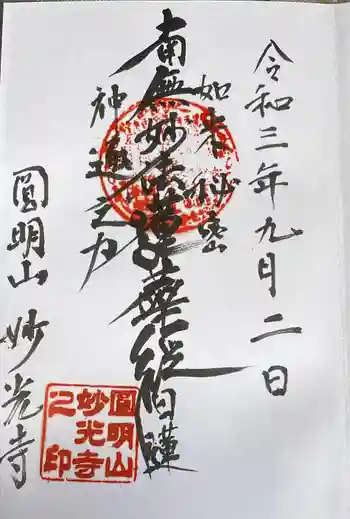 令和三年九月二日
如来秘密
南無妙法蓮華経
日蓮
神通之力
圓明山 妙光寺
圓明山
妙光寺
之印